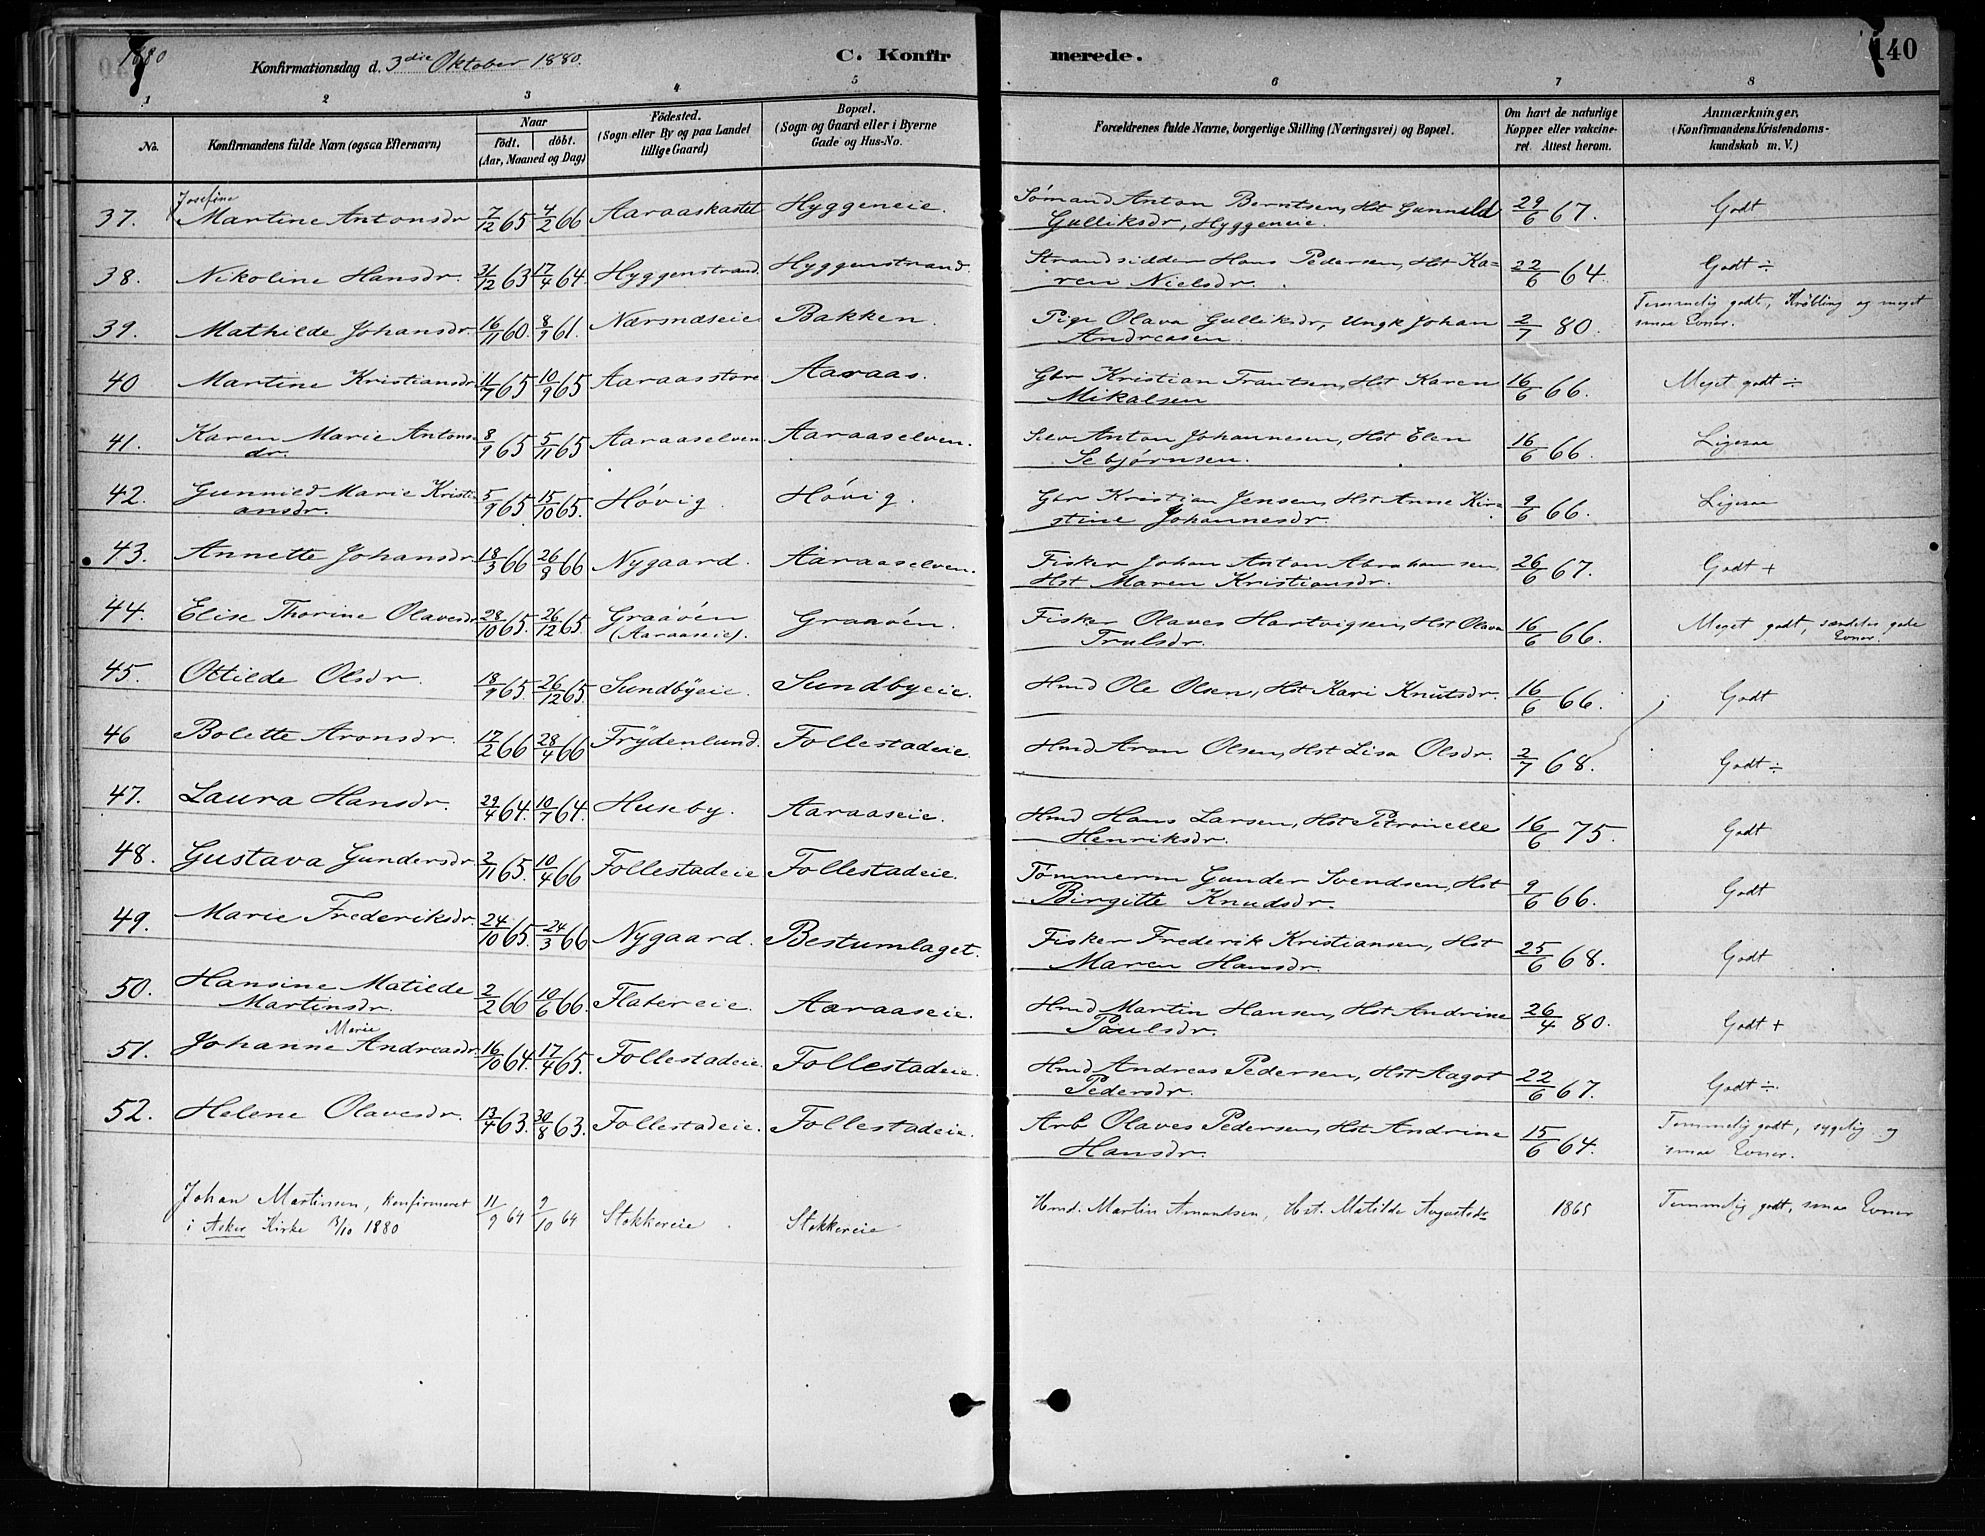 1880
Konfirmationsdag d. 3die Oktober 1880.
C. Konfir
merede.
140
1 2 3 4 5 6 7 8
No.
Konfirmandens fulde Navn (ogsaa Efternavn)
Naar
født. døbt.
(Aar, Maaned og Dag)
Fødested.
(Sogn eller By og paa Landet
tillige Gaard)
Bopæl.
(Sogn og Gaard eller i Byerne
Gade og Hus-No.
Forældrenes fulde Navne, borgerlige Stilling (Næringsvei) og Bopæl.
Om havt de naturlige
Kopper eller vakcine-
ret. Attest herom.
Anmærkninger.
(Konfirmandens Kristendoms-
kundskab m. V.)
Josefine
37. Martine Antonsdr 7/12 65 4/2 66 Aaraaskastet Hyggeneie. Sømand Anton Berntsen, Hst Gunnild 29/6 67. Godt
Gulliksdr, Hyggeneie.
38. Nikoline Hansdr. 31/12 63 17/4 64. Hyggenstrand. Hyggenstrand. Strandsidder Hans Pedersen, Hst Ka- 22/6 64. Godt ÷
ren Nielsdr.
39. Mathilde Johansdr. 16/11 60. 8/9 61. Nærsnæseie Bakken. Pige Olava Gulliksdr, Ungk Johan 2/7 80. Temmelig godt, Krøbling og meget
Andreasen. smaa Evner.
40 Martine Kristiansdr. 11/7 65 10/9 65 Aaraasstore Aaraas. Gbr Kristian Trantsen, Hst Karen 16/6 66. Meget godt ÷
Mikalsen
41. Karen Marie Antons- 8/9 65 5/11 65 Aaraaselven. Aaraaselven. Selv Anton Johannesen, Hst Elen 16/6 66. Ligesaa
dr. Sebjørnsen.
42. Gunnild Marie Kristi- 5/9 65 15/10 65. Høvig. Høvig. Gbr Kristian Jensen, Hst Anne Kir- 9/6 66. Ligesaa
ansdr. stine Johannesdr.
43. Annette Johansdr. 18/3 66 26/8 66 Nygaard. Aaraaselven. Fisker Johan Anton Abrahamsen, 26/6 67. Godt +
Hst Maren Kristiansdr.
44. Elise Thorine Olavesdr 28/10 65. 26/12 65. Graaøén Graaøén. Fisker Olaves Hartvigsen, Hst Olava 16/6 66. Meget godt, særdeles gode
(Aaraaseie). Trulsdr. Evner.
45. Ottilde Olsdr. 18/9 65. 26/12 65. Sundbyeie. Sundbyeie. Hmd Ole Olsen, Hst Kari Knutsdr. 16/6 66. Godt
46 Bolette Aronsdr. 17/2 66 28/4 66 Frydenlund. Follestadeie. Hmd Aron Olsen, Hst Lisa Olsdr. 2/7 68. Godt ÷
47. Laura Hansdr. 29/4 64. 10/7 64. Huseby. Aaraaseie. Hmd Hans Larsen, Hst Petronelle 16/6 75. Godt
Henriksdr.
48. Gustava Gundersdr. 2/11 65. 10/4 66 Follestadeie Follestadeie. Tømmerm Gunder Svendsen, Hst 9/6 66. Godt
Birgitte Knudsdr.
49. Marie Frederiksdr. 24/10 65. 24/3 66 Nygaard. Bestumlaget. Fisker Frederik Kristiansen, Hst 25/6 68. Godt
Maren Hansdr.
50. Hansine Matilde 2/2 66 10/6 66. Flatereie. Aaraaseie. Hmd Martin Hansen, Hst Andrine 26/4 80. Godt +
Martinsdr. Paulsdr.
Marie
51. Johanne Andreasdr. 16/10 64. 17/4 65. Follestadeie. Follestadeie. Hmd Andreas Pedersen, Hst Aagot 22/6 67. Godt ÷
Pedersdr.
52. Helene Olavesdr. 13/4 63. 30/8 63. Follestadeie. Follestadeie. Arb Olaves Pedersen, Hst Andrine 15/6 64. Temmelig godt, sygelig og
Hansdr. smaa Evner.
Johan Martinsen, konfirmeret 11/9 64 9/10 64 Stokkereie Stokkereie Hmd. Martin Amundsen, Hst. Matilde Augustsdr 1865 Temmelig godt, smaa Evner
i Asker Kirke 3/10 1880